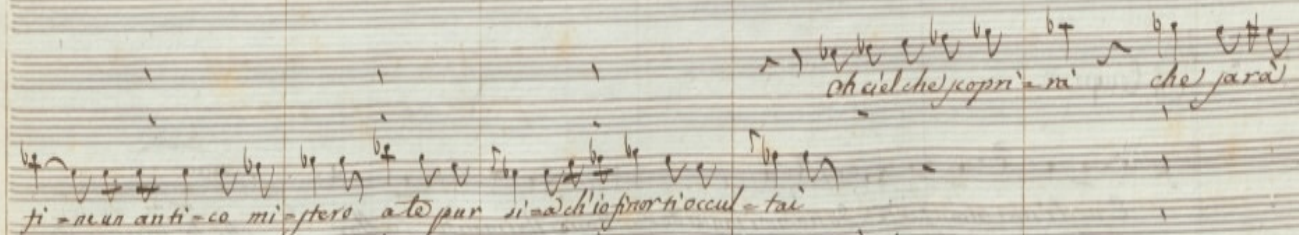 oh ciel che scopri=rà che sarà
ti=ne un anti=co mi=stero a te pur si=a ch'io finor ti occul=tai